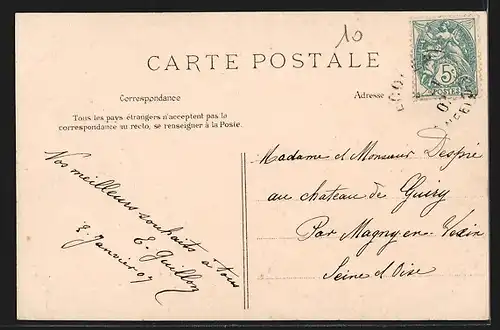 10
CARTE POSTALE
5c
POSTES
Correspondance
Adresse
Tous les pays étrangers n'acceptent pas la
correspondance au recto, se renseigner à la Poste.
Nos meilleurs souhaits à tous
E. Guillon
Janvier 07
Madame et Monsieur Despré
au chateau de Guiry
Par Magny-en-Vexin
Seine et Oise